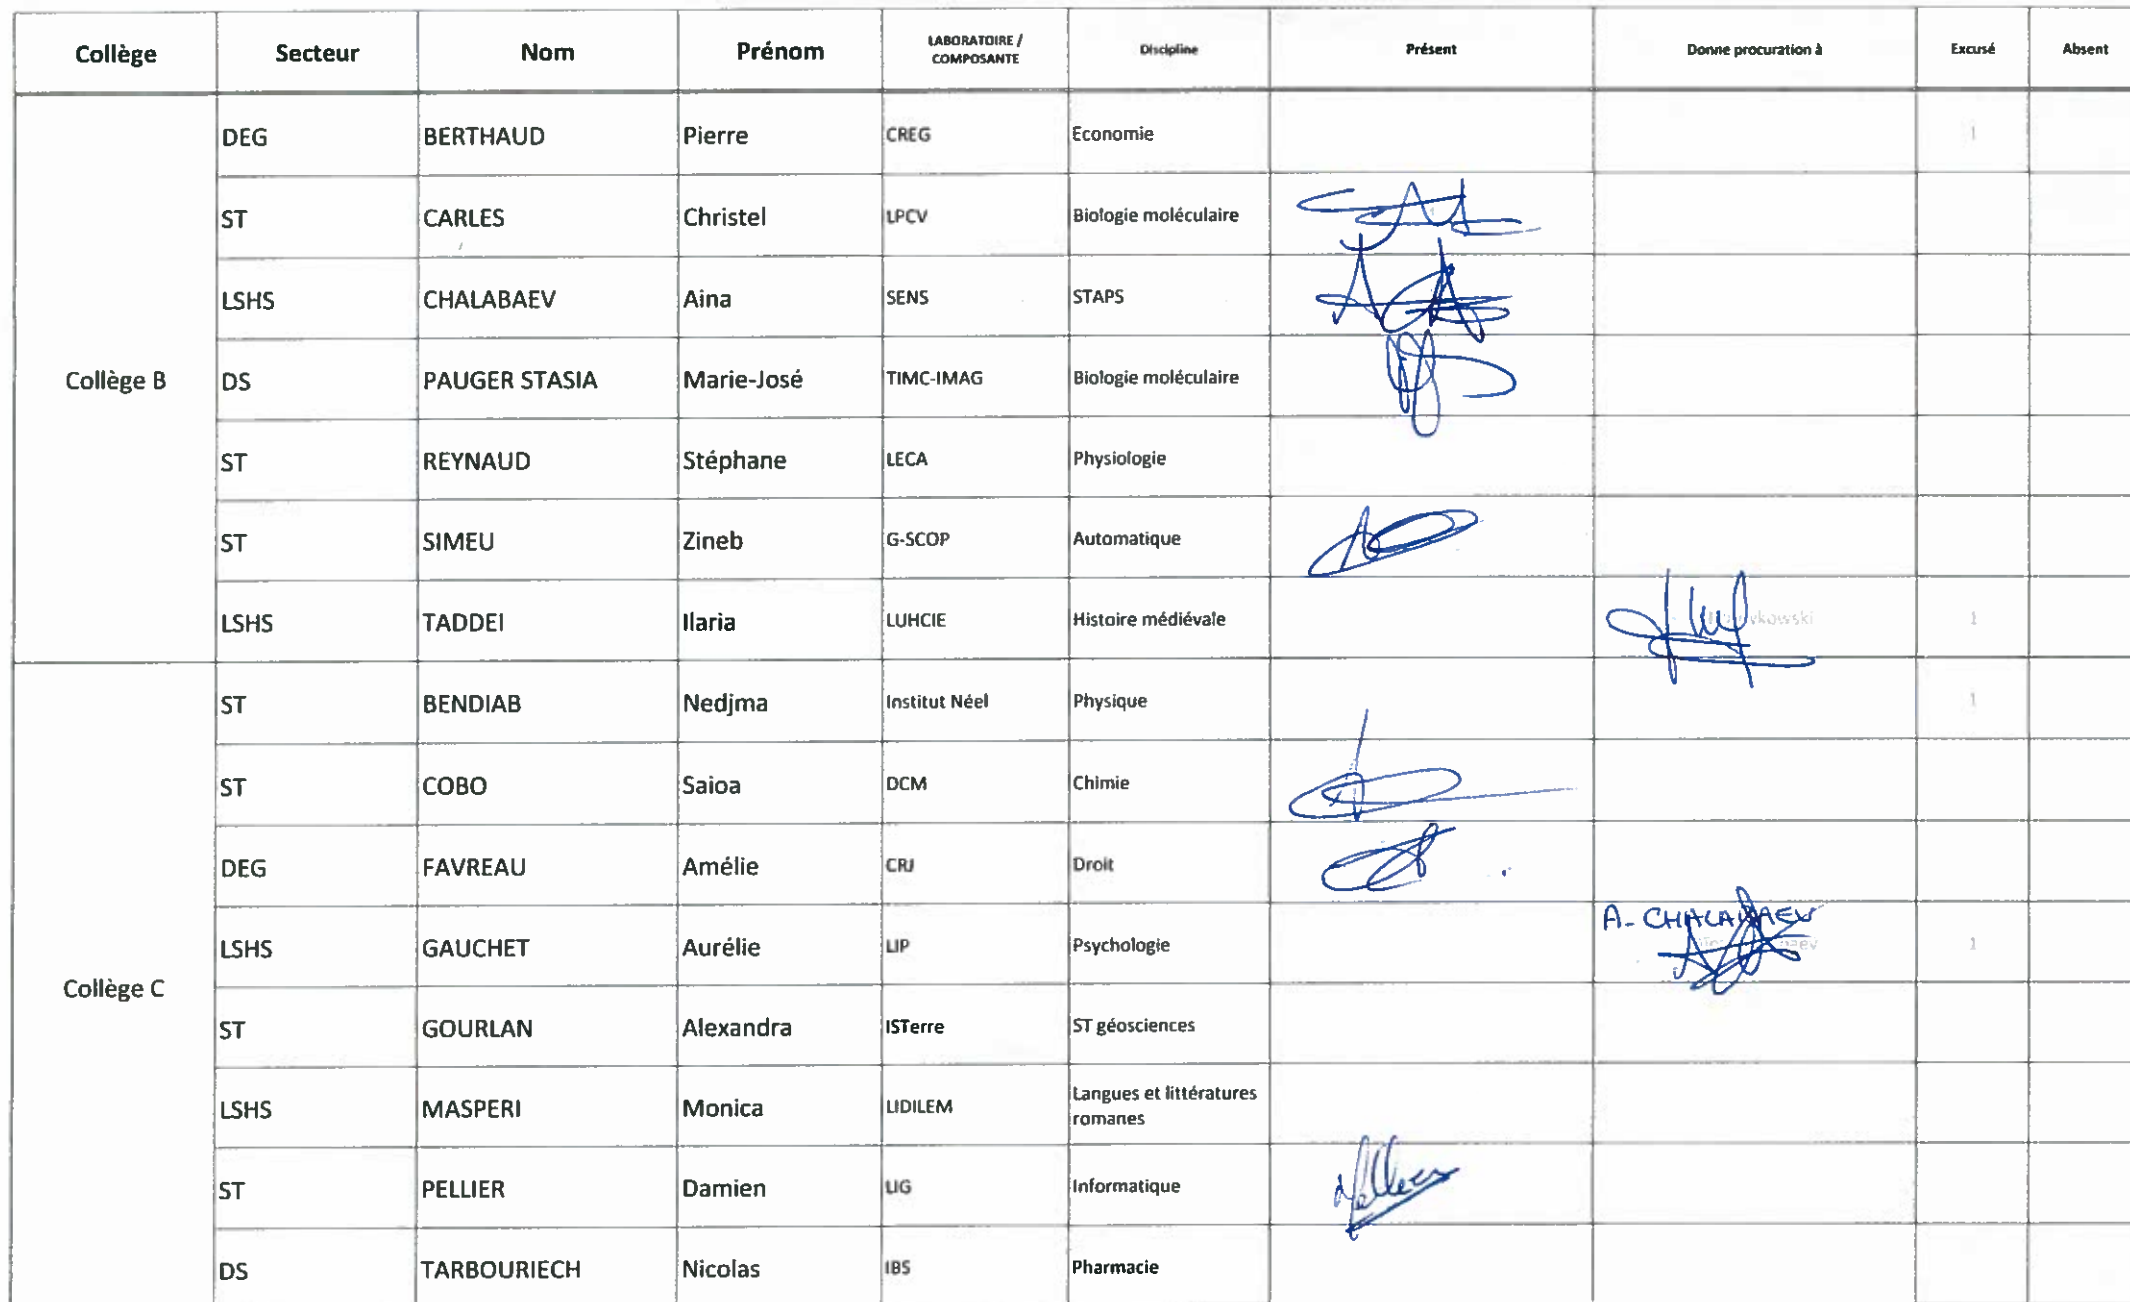 Collège Secteur Nom Prénom LABORATOIRE / COMPOSANTE Discipline Présent Donne procuration à Excusé Absent
Collège B
DEG BERTHAUD Pierre CREG Economie 1
ST CARLES Christel LPCV Biologie moléculaire
LSHS CHALABAEV Aina SENS STAPS
DS PAUGER STASIA Marie-José TIMC-IMAG Biologie moléculaire
ST REYNAUD Stéphane LECA Physiologie
ST SIMEU Zineb G-SCOP Automatique
LSHS TADDEI Ilaria LUHCIE Histoire médiévale 1
Collège C
ST BENDIAB Nedjma Institut Néel Physique 1
ST COBO Saioa DCM Chimie
DEG FAVREAU Amélie CRJ Droit
LSHS GAUCHET Aurélie LIP Psychologie A- CHALABAEV 1
ST GOURLAN Alexandra ISTerre ST géosciences
LSHS MASPERI Monica LIDILEM Langues et littératures romanes
ST PELLIER Damien LIG Informatique
DS TARBOURIECH Nicolas IBS Pharmacie